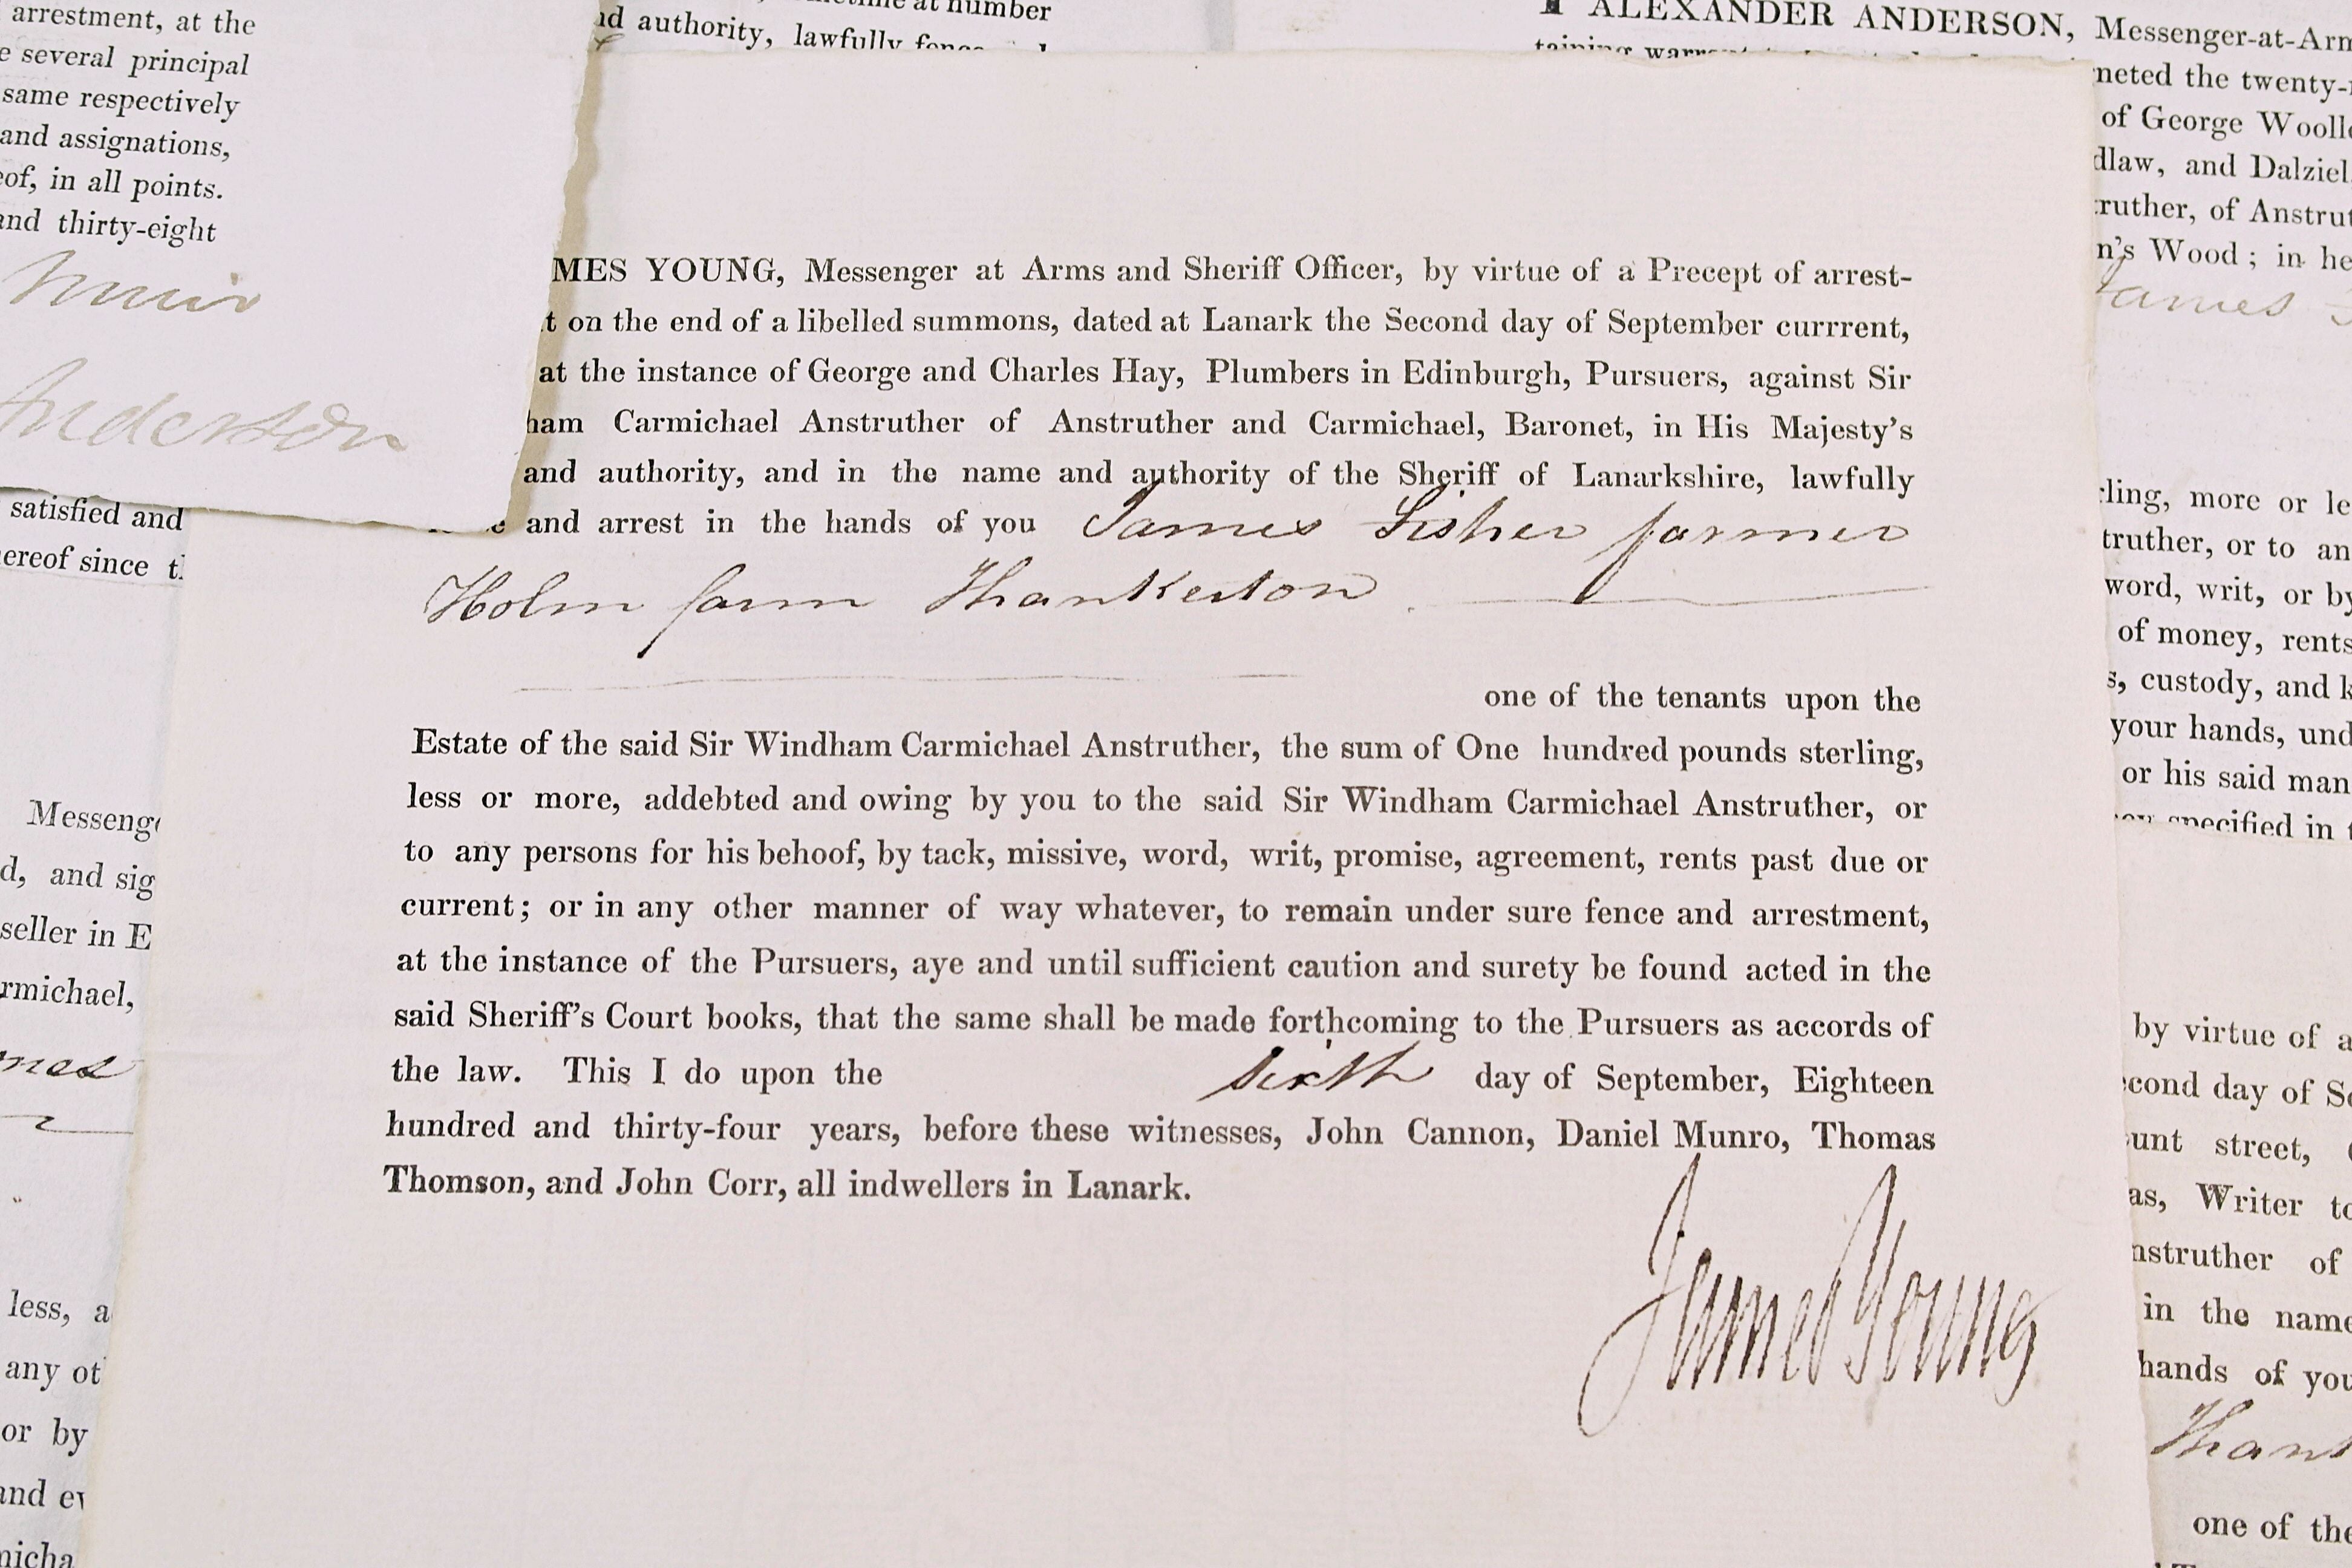 arrestment, at the
several principal
same respectively
and assignations,
in all points.
and thirty-eight
Muir
Anderson
satisfied and
since
at number
authority, lawfully
ALEXANDER ANDERSON, Messenger-at-Arm
the twenty-
of George
and Dalziel
of
Wood; in he
James
MES YOUNG, Messenger at Arms and Sheriff Officer, by virtue of a Precept of arrest-
t on the end of a libelled summons, dated at Lanark the Second day of September currrent,
at the instance of George and Charles Hay, Plumbers in Edinburgh, Pursuers, against Sir
ham Carmichael Anstruther of Anstruther and Carmichael, Baronet, in His Majesty's
and authority, and in the name and authority of the Sheriff of Lanarkshire, lawfully
and arrest in the hands of you James Fisher farmer
Holm farm Thankerton
one of the tenants upon the
Estate of the said Sir Windham Carmichael Anstruther, the sum of One hundred pounds sterling,
less or more, addebted and owing by you to the said Sir Windham Carmichael Anstruther, or
to any persons for his behoof, by tack, missive, word, writ, promise, agreement, rents past due or
current; or in any other manner of way whatever, to remain under sure fence and arrestment,
at the instance of the Pursuers, aye and until sufficient caution and surety be found acted in the
said Sheriff's Court books, that the same shall be made forthcoming to the Pursuers as accords of
the law. This I do upon the sixth day of September, Eighteen
hundred and thirty-four years, before these witnesses, John Cannon, Daniel Munro, Thomas
Thomson, and John Corr, all indwellers in Lanark.
James Young
Messeng
and sig
seller in E
rmichael,
less, a
any ot
or by
and ev
micha
rling, more or le
truther, or to an
word, writ, or by
of money, rents
custody, and k
your hands, und
or his said man
specified in
by virtue of a
day of Se
street,
Writer to
nstruther of
in the name
hands of you
Thank
one of the